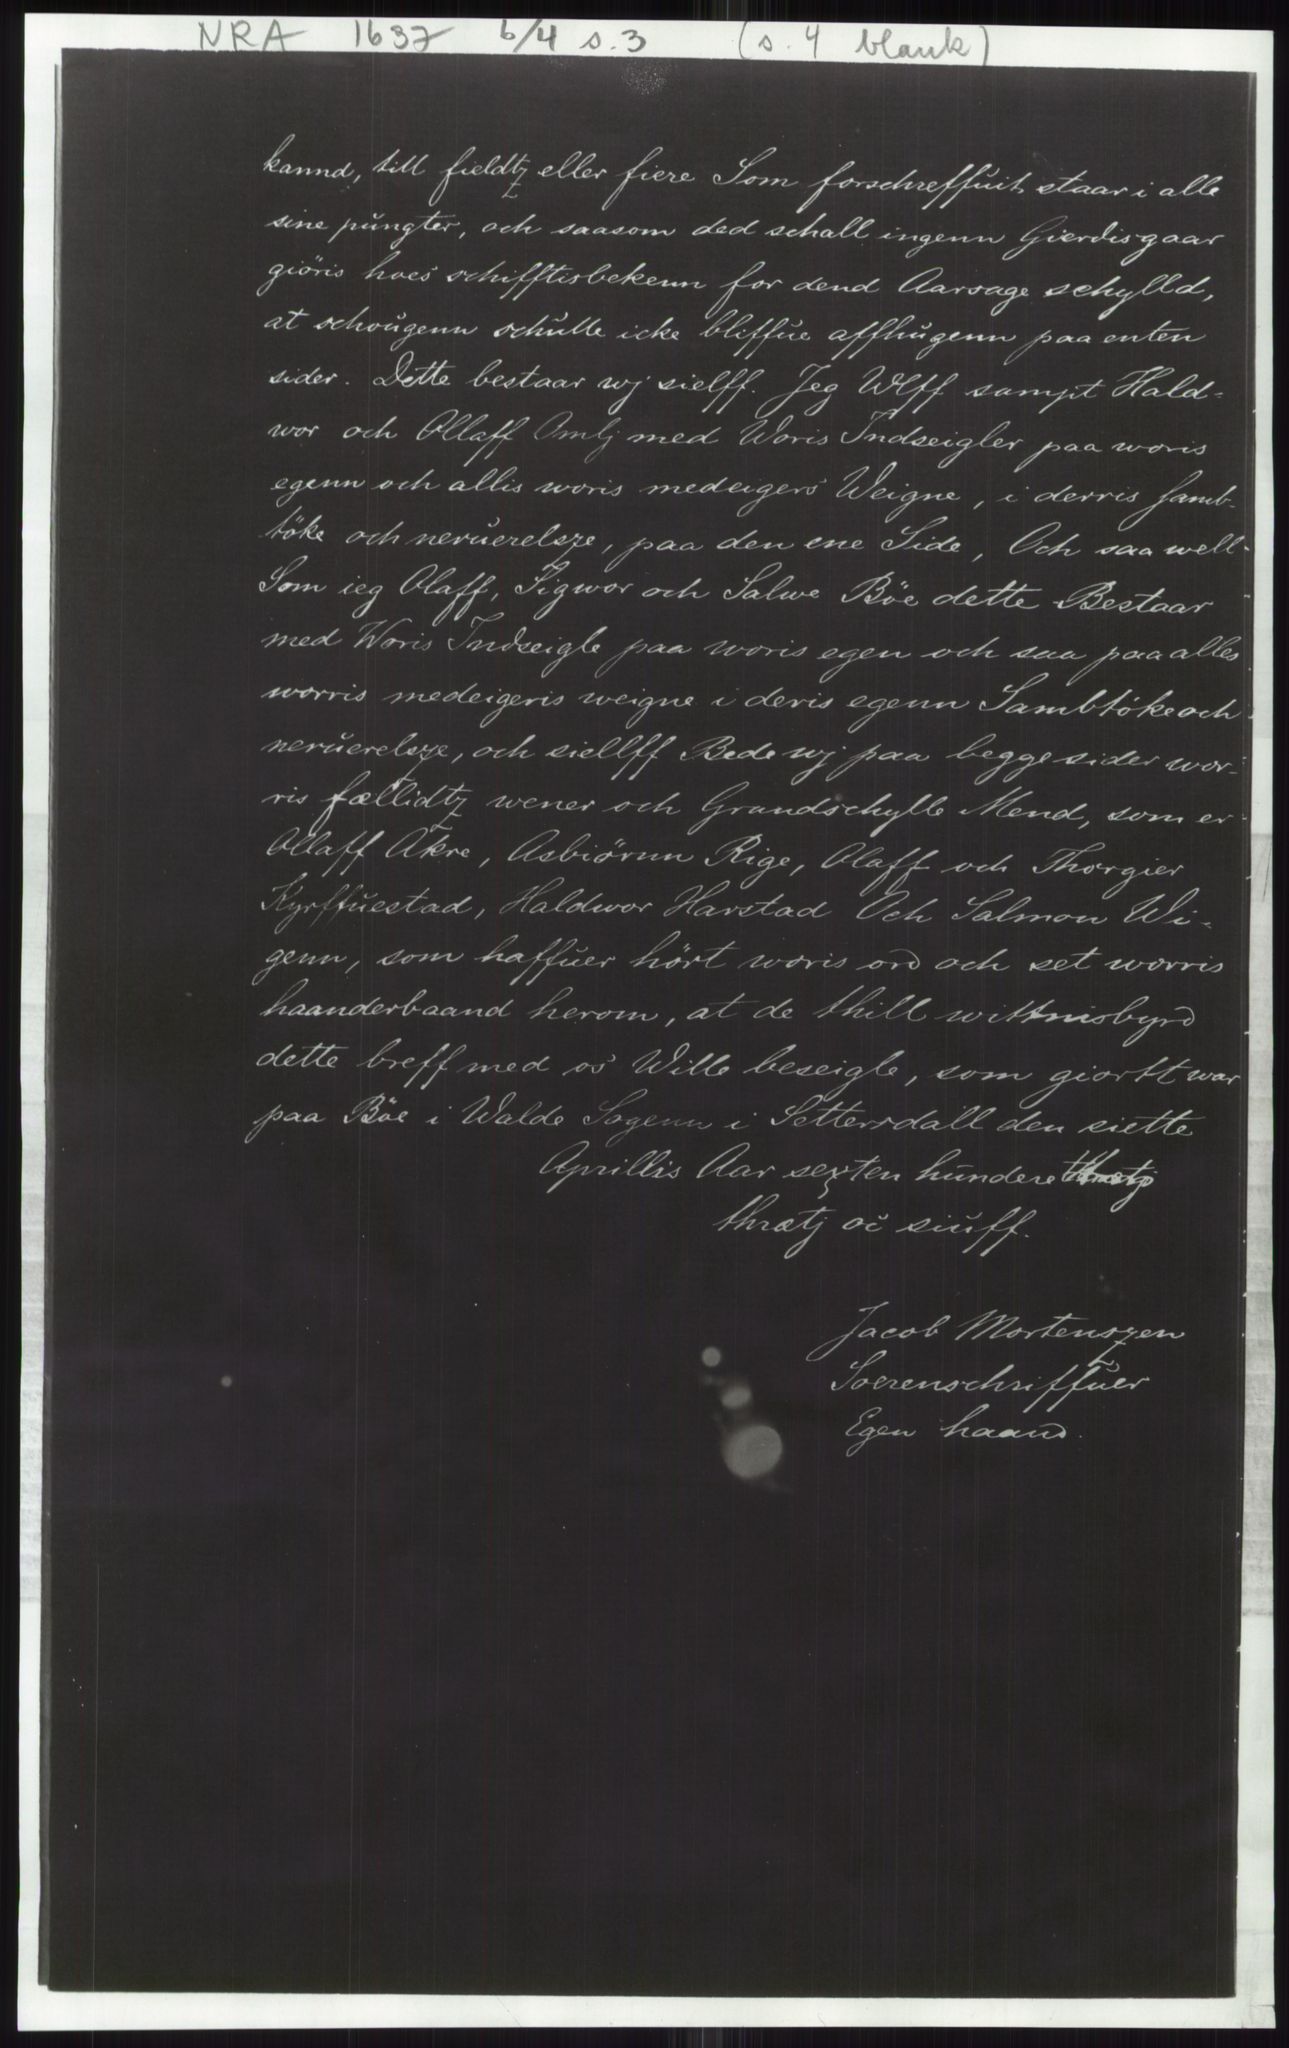 NRA 1637 6/4 s.3 (s. 4 blank)
kannd, till fieldtz eller fiere Som forschreffuit staar i alle
sine pŭngter, och saasom ded schall ingenn Gierdisgaar
giöris hoes schifftisbekenn for dend Aarsage schylld,
at schoŭgenn schŭlle icke bliffue affhŭgenn paa enten
sider. Dette bestaar wj sielff. Jeg Wlff sampt Hald-
wor och Ollaff Omlj med Woris Indseigler paa woris
egenn och allis woris medeigers Weigne, i derris samb-
töke och nerŭerelsze, paa den ene Side, Och saa well-
Som ieg Olaff, Sigwor och Salwe Böe dette Bestaar
med Woris Indseigle paa woris egen och saa paa alles
worris medeigeris weigne i deris egenn Sambtöke och
nerŭerelsze, och siellff Bede wj paa begge sider wor-
ris fællidtz wener och Grandschylle Mend, som er
Ollaff Åkre, Asbiörnn Rige, Olaff och Thorgier
Kyrffŭestad, Haldwor Harstad Och Salmon Wi-
genn, som haffŭer hört woris ord och set worris
haanderbaand herom, at de thill wittnisbyrd
dette breff med os Wille beseigle, som giortt war
paa Böe i Walde Sogenn i Settersdall den siette
Aprillis Aar sexten hŭndere thrætj
thrætj oc siŭff.
Jacob Mortenszen
Soerenschriffŭer
Egen haand.